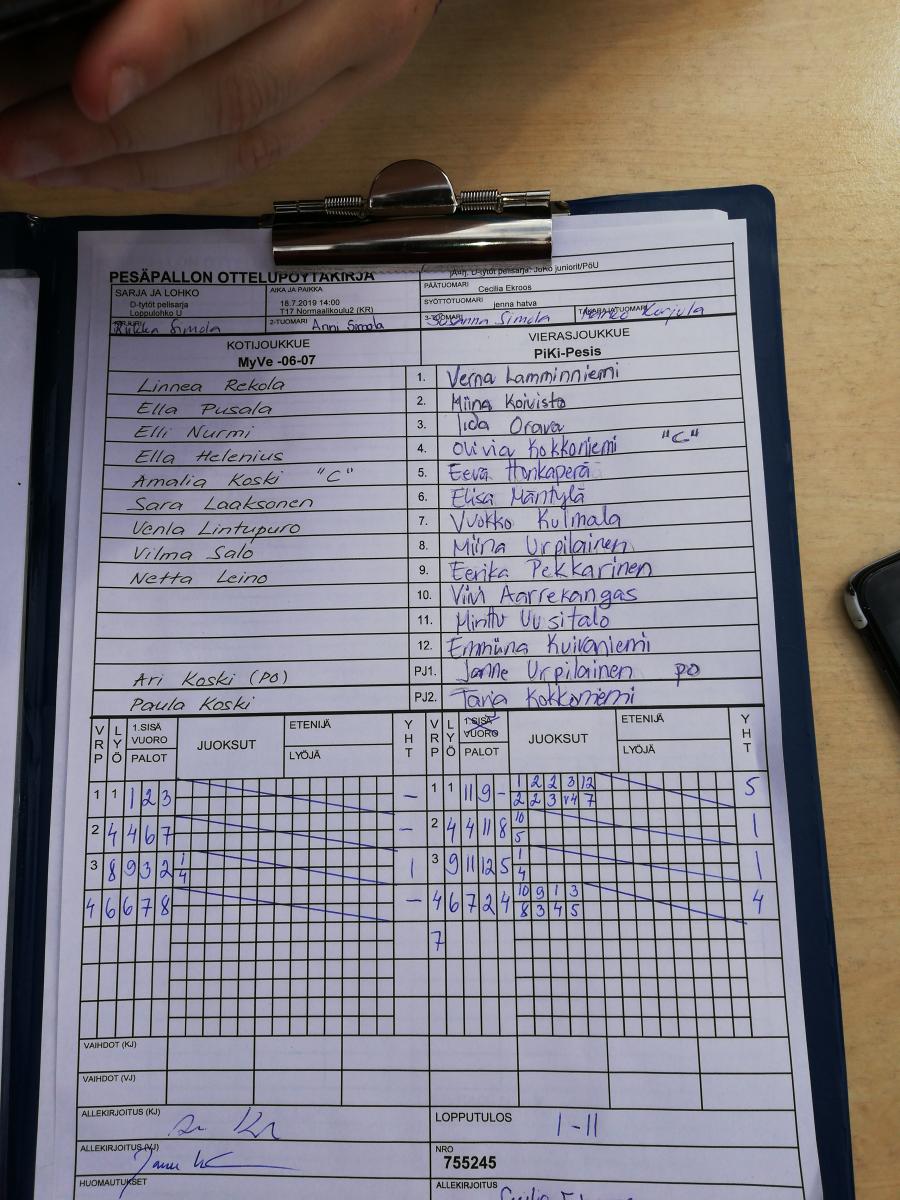 PESÄPALLON OTTELUPÖYTÄKIRJA
JÄRJ. D-tytöt pelisarja: JoKo juniorit/PöU
SARJA JA LOHKO
D-tytöt pelisarja
Loppulohko U
AIKA JA PAIKKA
18.7.2019 14:00
T17 Normaalikoulu2 (KR)
PÄÄTUOMARI Cecilia Ekroos
SYÖTTÖTUOMARI jenna hatva
KIRJURI Riikka Simola
2-TUOMARI Anni Simola
3-TUOMARI Susanna Simola
TAKARAJATUOMARI Marko Karjula
KOTIJOUKKUE
MyVe -06-07
VIERASJOUKKUE
PiKi-Pesis
Linnea Rekola 1. Verna Lamminniemi
Ella Pusala 2. Miina Koivisto
Elli Nurmi 3. Iida Orava
Ella Helenius 4. Olivia Kokkoniemi "C"
Amalia Koski "C" 5. Eeva Honkaperä
Sara Laaksonen 6. Elisa Mäntylä
Venla Lintupuro 7. Vuokko Kulmala
Vilma Salo 8. Miina Urpilainen
Netta Leino 9. Eerika Pekkarinen
10. Vivi Aarrekangas
11. Minttu Uusitalo
12. Emmiina Kuivaniemi
Ari Koski (PO) PJ1. Janne Urpilainen PO
Paula Koski PJ2. Tarja Kokkoniemi
VRP LYÖ 1.SISÄ VUORO PALOT JUOKSUT ETENIJÄ LYÖJÄ YHT VRP LYÖ 1.SISÄ VUORO PALOT JUOKSUT ETENIJÄ LYÖJÄ YHT
1 1 1 2 3 — 1 1 11 9 - 1 2 2 3 12 5
2 2 3 v4 7
2 4 4 6 7 — 2 4 4 11 8 10 1
5
3 8 9 3 2 1 1 3 9 11 12 5 1 1
4 4
4 6 6 7 8 — 4 6 7 2 4 10 9 1 3 4
8 3 4 5
7
VAIHDOT (KJ)
VAIHDOT (VJ)
ALLEKIRJOITUS (KJ)
LOPPUTULOS 1-11
ALLEKIRJOITUS (VJ)
NRO
755245
HUOMAUTUKSET
ALLEKIRJOITUS